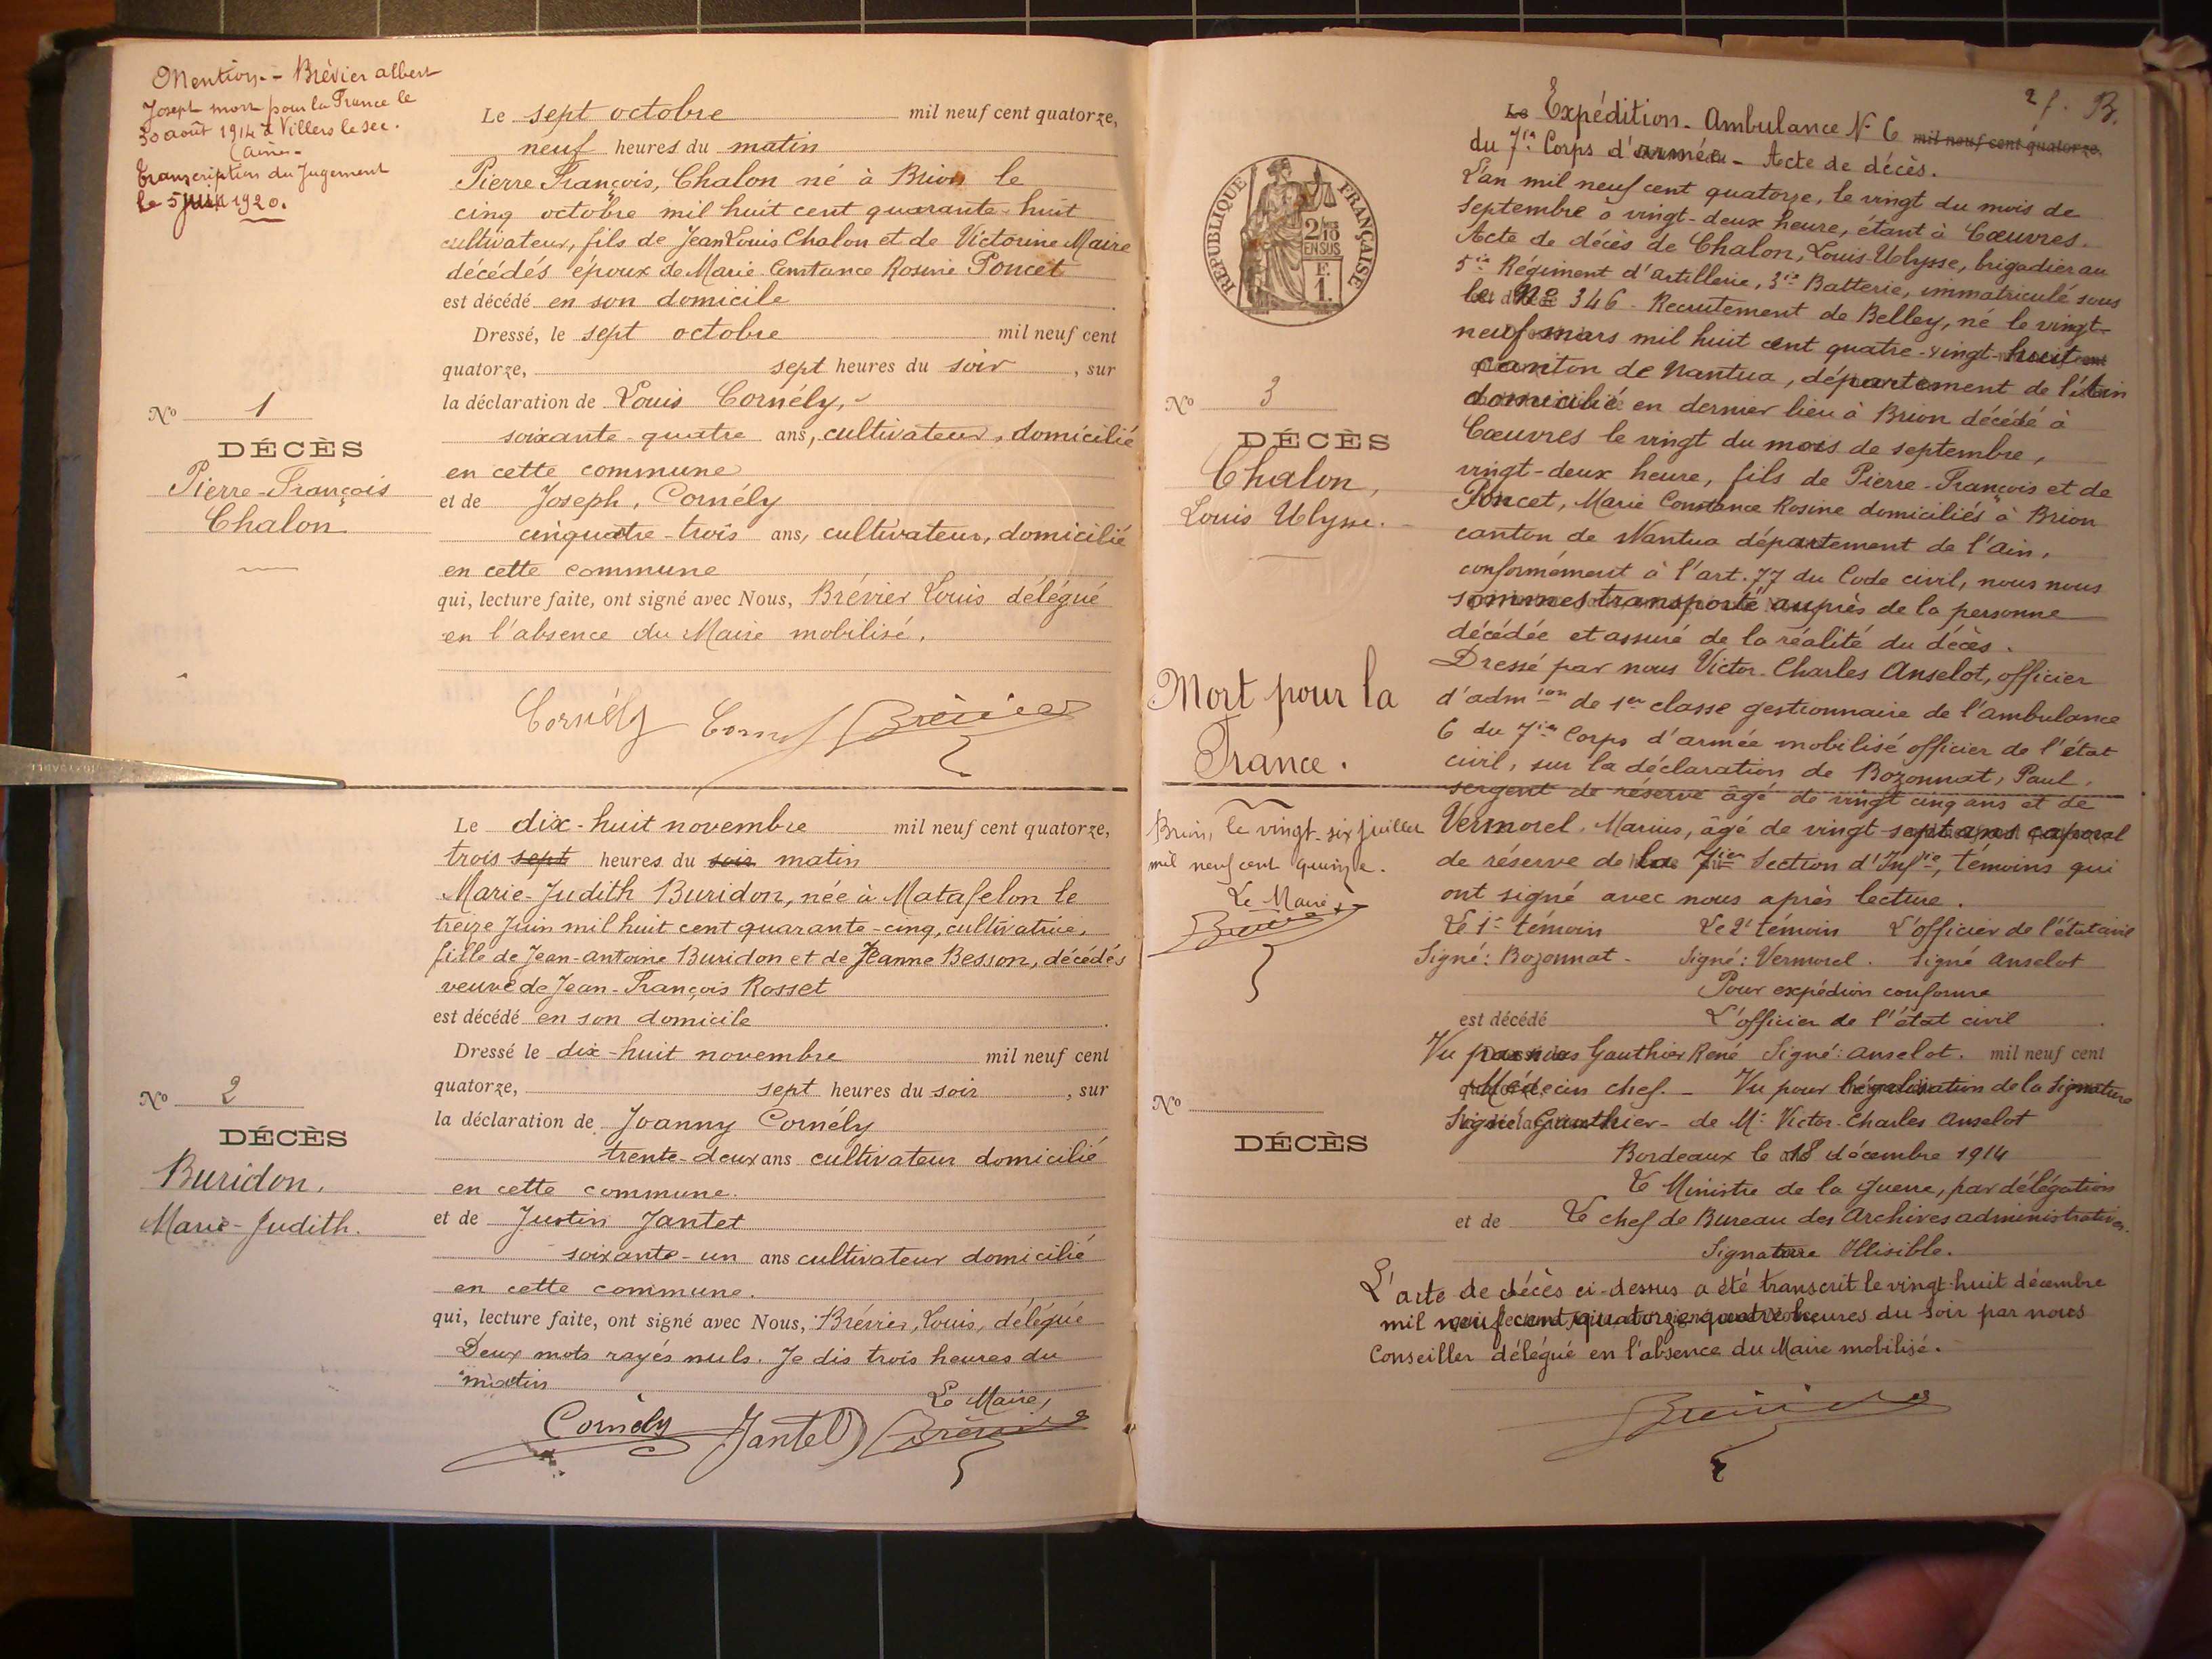 Mention. - Brévier albert
Joseph mort pour la France le
30 août 1914 à Villers le sec.
(Aisne-
Transcription du Jugement
le 5 juin 1920.
Le sept octobre mil neuf cent quatorze,
neuf heures du matin
Pierre François, Chalon né à Brion le
cinq octobre mil huit cent quarante-huit
cultivateur, fils de Jean Louis Chalon et de Victorine Maire
décédés époux de Marie Constance Rosine Poncet
est décédé en son domicile
Dressé, le sept octobre mil neuf cent
quatorze, sept heures du soir, sur
la déclaration de Louis Cornély,
soixante-quatre ans, cultivateur, domicilié
en cette commune
et de Joseph, Cornély
cinquatre-trois ans, cultivateur, domicilié
en cette commune
qui, lecture faite, ont signé avec Nous, Brévier Louis délégué
en l'absence du Maire mobilisé.
Cornély Brévier
No 1
DÉCÈS
Pierre-François
Chalon
Le dix-huit novembre mil neuf cent quatorze,
trois sept heures du soir matin
Marie-Judith Buridon, née à Matafelon le
treize Juin mil huit cent quarante-cinq, cultivatrice,
fille de Jean-antoine Buridon et de Jeanne Besson, décédés
veuve de Jean-François Rosset
est décédé en son domicile
Dressé le dix-huit novembre mil neuf cent
quatorze, sept heures du soir, sur
la déclaration de Joanny Cornély
trente-deux ans cultivateur domicilié
en cette commune.
et de Justin Jantet
soixante-un ans cultivateur domicilié
en cette commune.
qui, lecture faite, ont signé avec Nous, Brévier, Louis, délégué
Deux mots rayés nuls. Je dis trois heures du
matin
Le Maire,
Cornély Jantet Brévier
No 2
DÉCÈS
Buridon,
Marie-Judith.
2 f. B.
RÉPUBLIQUE FRANÇAISE
2/10
EN SUS
F.
1.
Le Expédition - Ambulance No 6 mil neuf cent quatorze.
du 7ie Corps d'armée - Acte de décès.
L'an mil neuf cent quatorze, le vingt du mois de
septembre à vingt-deux heure, étant à Cœuvres.
Acte de décès de Chalon, Louis-Ulysse, brigadier au
5ie Régiment d'artillerie, 3ie Batterie, immatriculé sous
le No 346 - Recrutement de Belley, né le vingt-
neuf mars mil huit cent quatre-vingt-huit
canton de Nantua, département de l'Ain
domicilié en dernier lieu à Brion décédé à
Cœuvres le vingt du mois de septembre,
vingt-deux heure, fils de Pierre-François et de
Poncet, Marie Constance Rosine domiciliés à Brion
canton de Nantua département de l'ain,
conformément à l'art. 77 du Code civil, nous nous
sommes transporté auprès de la personne
décédée et assuré de la réalité du décès.
Dressé par nous Victor-Charles Anselot, officier
d'admion de 1er classe gestionnaire de l'ambulance
6 du 7ie Corps d'armée mobilisé officier de l'état
civil, sur la déclaration de Bozonnat, Paul,
sergent de réserve âgé de vingt cinq ans et de
Vermorel, Marius, âgé de vingt-sept ans caporal
de réserve de la 7ie Section d'Infie, témoins qui
ont signé avec nous après lecture.
Le 1er témoin Le 2e témoin L'officier de l'état civil
Signé: Bozonnat - Signé: Vermorel. Signé Anselot
Pour expédion conforme
est décédé L'officier de l'état civil
Vu par nous Gauthier René Signé: anselot. mil neuf cent
Médecin chef. - Vu pour légalisation de la Signature
Signé Gauthier - de Mr Victor-Charles Anselot
Bordeaux le 18 décembre 1914
Le Ministre de la Guerre, par délégation
et de Le chef de Bureau des Archives administratives.
Signature Illisible.
L'acte de décès ci-dessus a été transcrit le vingt-huit décembre
mil neuf cent quatorze quatre heures du soir par nous
Conseiller délégué en l'absence du Maire mobilisé.
Brévier
No 3
DÉCÈS
Chalon,
Louis Ulysse.
Mort pour la
France.
Brion, le vingt-six juillet
mil neuf cent quinze.
Le Maire,
Brévier
No
DÉCÈS